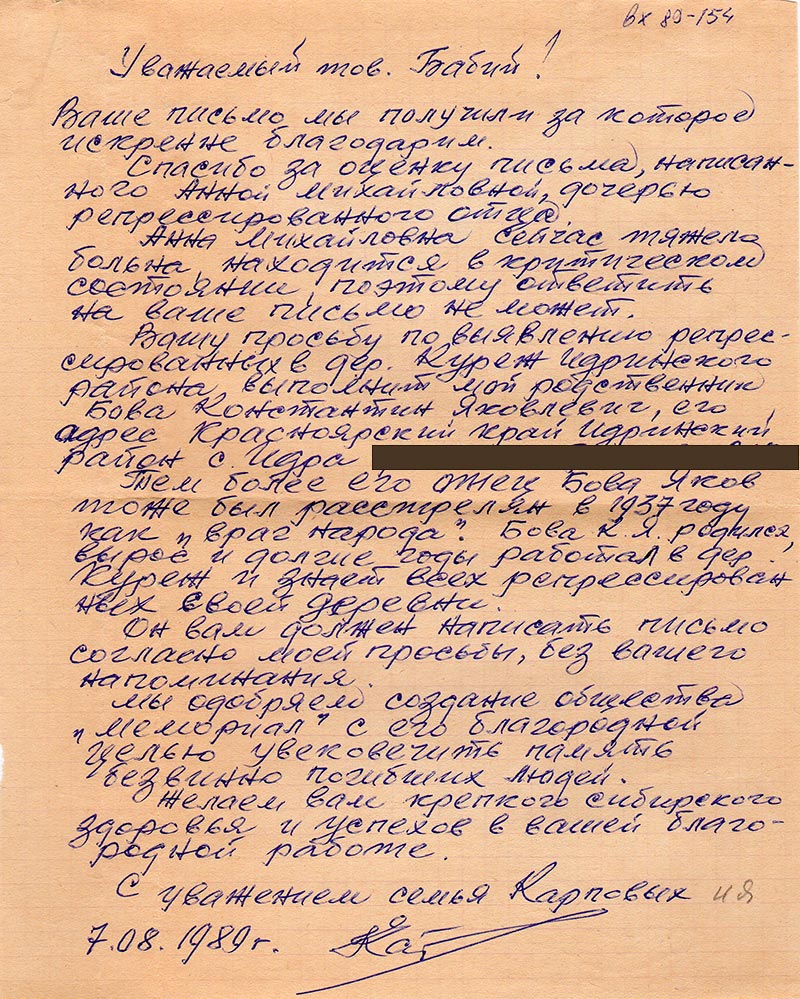 вх 89-154
Уважаемый тов. Бабий!
Ваше письмо мы получили за которое
искренне благодарим.
Спасибо за оценку письма, написан-
ного Анной Михайловной, дочерью
репрессированного отца.
Анна Михайловна сейчас тяжело
больна, находится в критическом
состоянии, поэтому ответить
на ваше письмо не может.
Вашу просьбу по выявлению репрес-
сированных в дер. Куреж Идринского
района выполнит мой родственник
Бова Константин Яковлевич, его
адрес Красноярский край Идринский
район с. Идра
Тем более его отец Бова Яков
тоже был расстрелян в 1937 году
как „враг народа". Бова К.Я. родился,
вырос и долгие годы работал в дер.
Куреж и знает всех репрессирован
ных своей деревни.
Он вам должен написать письмо
согласно моей просьбы, без вашего
напоминания.
Мы одобряем создание общества
„Мемориал" с его благородной
целью увековечить память
безвинно погибших людей.
Желаем вам крепкого сибирского
здоровья и успехов в вашей благо-
родной работе.
С уважением семья Карповых ИЯ
7.08.1989 г.